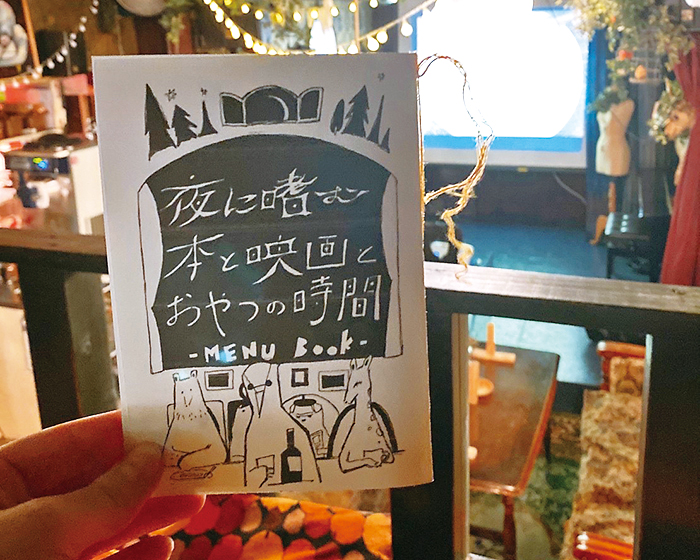 夜に嗜む
本と映画と
おやつの時間
-MENU Book-